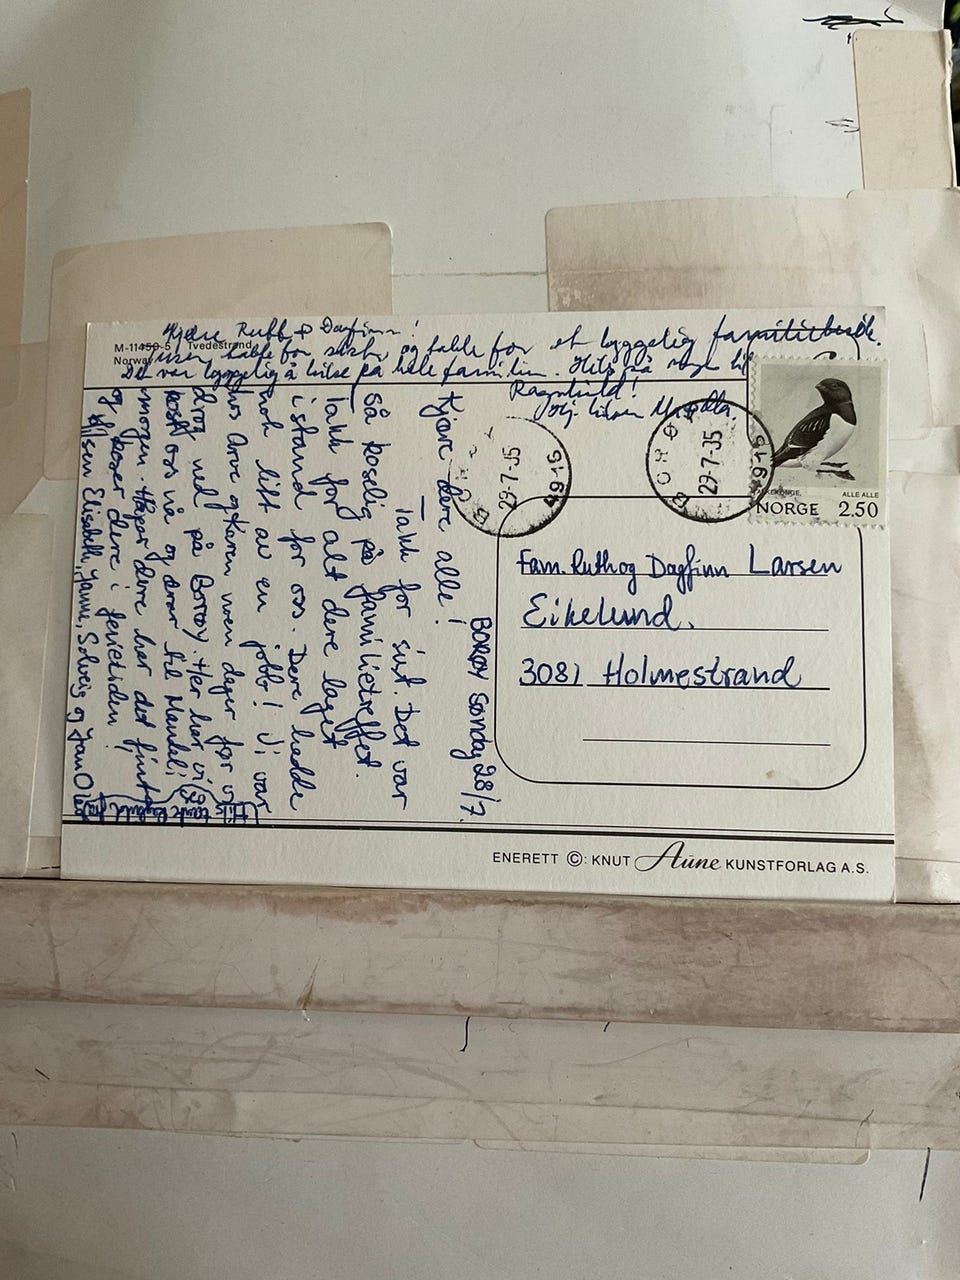 Kjære Ruth & Dagfinn!
takke for sist, og takke for et hyggelig familiebesøk.
Det var hyggelig å hilse på hele familien. Hils på
Ragnhild!
hilsen
M-11450-5 Tvedestrand
Norway
BORØY søndag 28/7.
Kjære dere alle!
Takk for sist. Det var
så koselig på familietreffet.
Takk for alt dere laget
istand for oss. Dere hadde
nok litt av en jobb! Vi var
hos Arve og Karen noen dager før vi
drog ned på Borøy. Her har vi
kost oss nå og drar til Mandal i
morgen. Håper dere har det fint
og koser dere i ferietiden!
Hilsen Elisabeth, Janne, Solveig og Jan O
Hils
tante Ragnhild
BORØY
29-7-85
4916
BORØY
29-7-85
4916
ALKEKONGE, ALLE ALLE
NORGE 2.50
Fam. Ruth og Dagfinn Larsen
Eikelund.
3081 Holmestrand
ENERETT ©: KNUT Aune KUNSTFORLAG A.S.